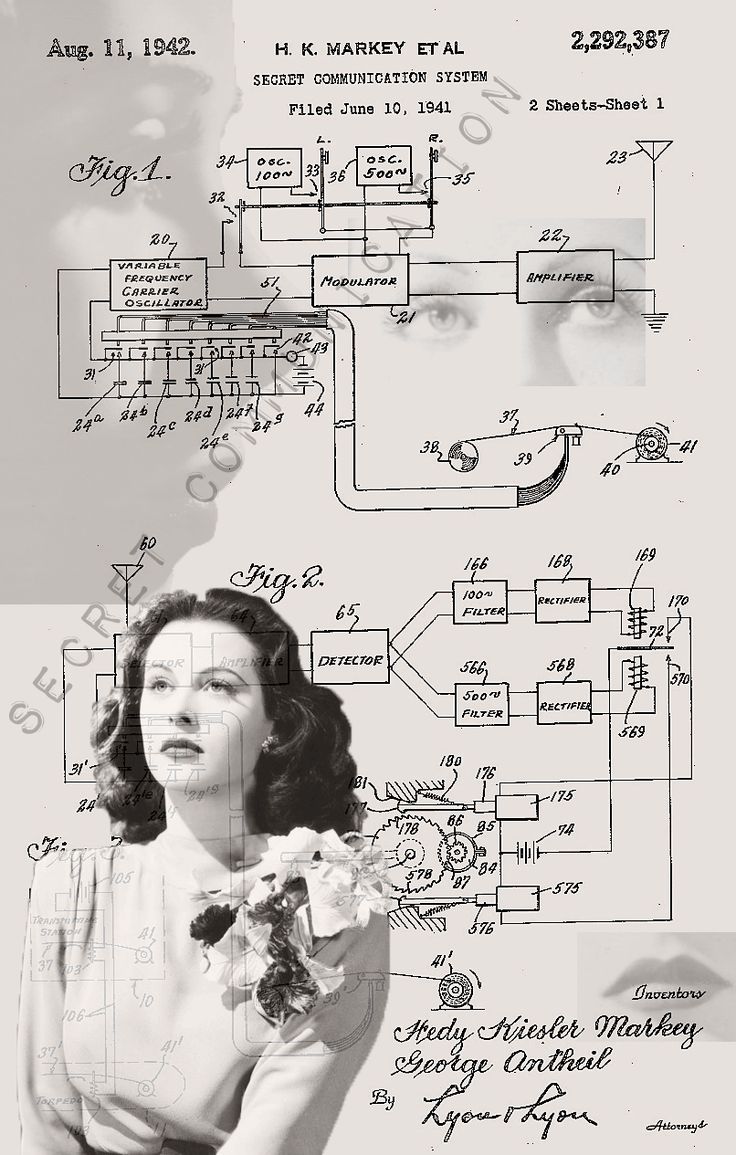 Aug. 11, 1942.
H. K. MARKEY ET AL
2,292,387
SECRET COMMUNICATION SYSTEM
Filed June 10, 1941
2 Sheets-Sheet 1
SECRET COMMUNICATION
Fig.1.
34
OSC. 100~
L.
33
36
OSC. 500~
R.
35
23
32
20
VARIABLE
FREQUENCY
CARRIER
OSCILLATOR
MODULATOR
21
22
AMPLIFIER
51
31
31
42
43
44
24a
24b
24c
24d
24e
24f
24g
37
38
39
40
41
60
Fig.2.
SELECTOR
64
AMPLIFIER
65
DETECTOR
166
100~
FILTER
168
RECTIFIER
169
170
72
566
500~
FILTER
568
RECTIFIER
569
570
31'
24'
24'e
24'g
181
177
180
176
175
178
86
85
74
578
87
84
577
576
575
Fig. 3.
105
TRANSMITTING
STATION
41
37
103
10
106
39'
41'
37'
41'
TORPEDO
103
Inventors
Hedy Kiesler Markey
George Antheil
By
Lyon & Lyon
Attorneys